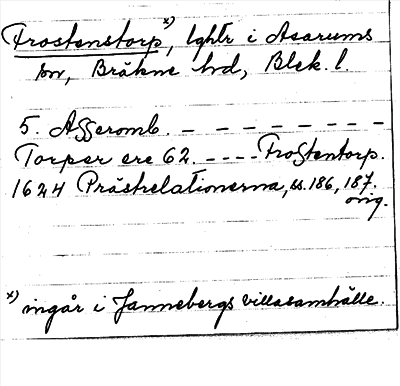 Frostenstorp x), lght i Asarums
sn, Bräkne hd, Blek. l.
5. Asseromb. - - - - - - - -
Torper ere 62. - - - - Frostentorp.
1624 Prästrelationerna, ss. 186, 187.
orig.
x) ingår i Jannebergs villasamhälle.